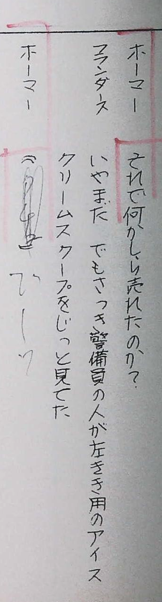 ホーマー　それで何かしら売れたのか？
フランダース　いやまだ　でもさっき警備員の人が左きき用のアイス
クリームスクープをじっと見てた
ホーマー